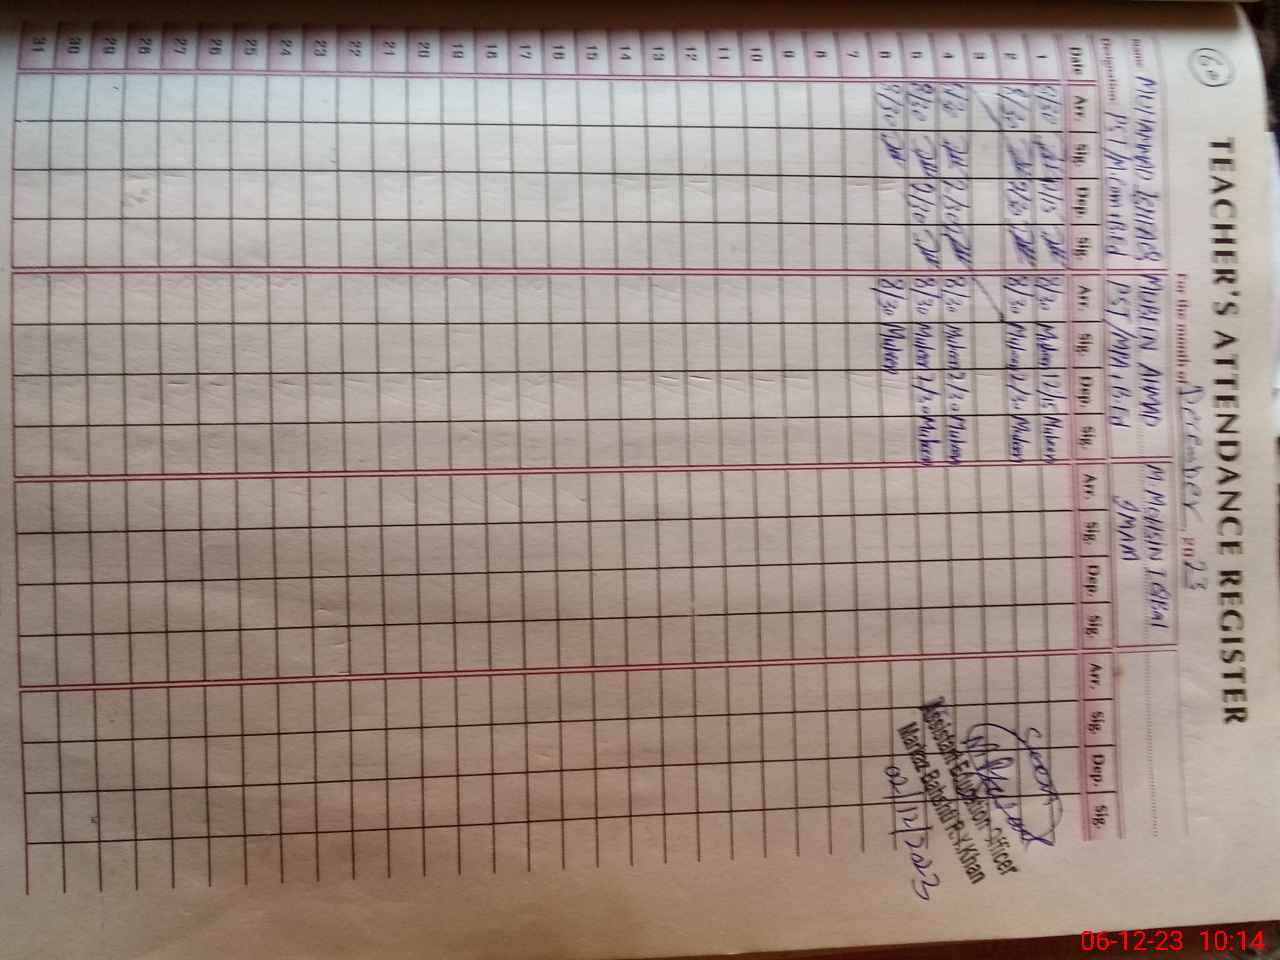 60
TEACHER'S ATTENDANCE REGISTER
For the month of December, 2023
Name MUHAMMAD MUBEEN AHMAD M. MOHSIN IQBAL
Designation PST/M.Com+B.Ed PST/MPA+B.Ed IMAM
Date Arr. Sig. Dep. Sig. Arr. Sig. Dep. Sig. Arr. Sig. Dep. Sig. Arr. Sig. Dep. Sig.
1 8/30 8/30 Mubeen 12/15 Mubeen
2 8/30 8/30 Mubeen 2/30 Mubeen
3
4 8/30 8/30 Mubeen 2/30 Mubeen
5 8/30 8/30 Mubeen 2/30 Mubeen
6 8/30 8/30 Mubeen
7
8
9
10
11
12
13
14
15
16
17
18
19
20
21
22
23
24
25
26
27
28
29
30
31
Assistant Education Officer
Markaz R.Y.Khan
02/12/2023
06-12-23 10:14